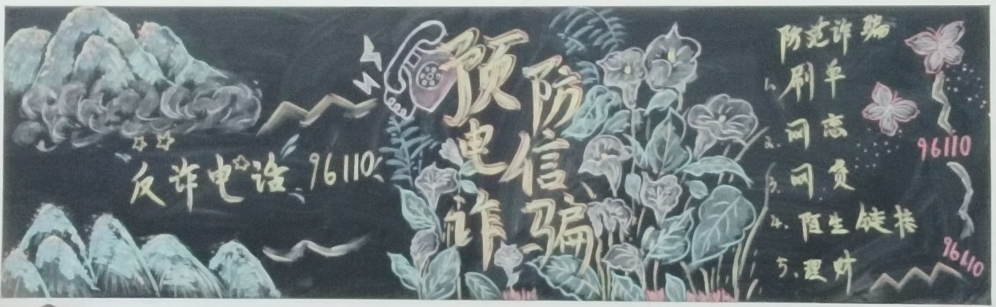 反诈电话 96110
预防
电信
诈骗
防范诈骗
1. 刷单
2. 网恋
3. 网贷
4. 陌生链接
5、理财
96110
96110